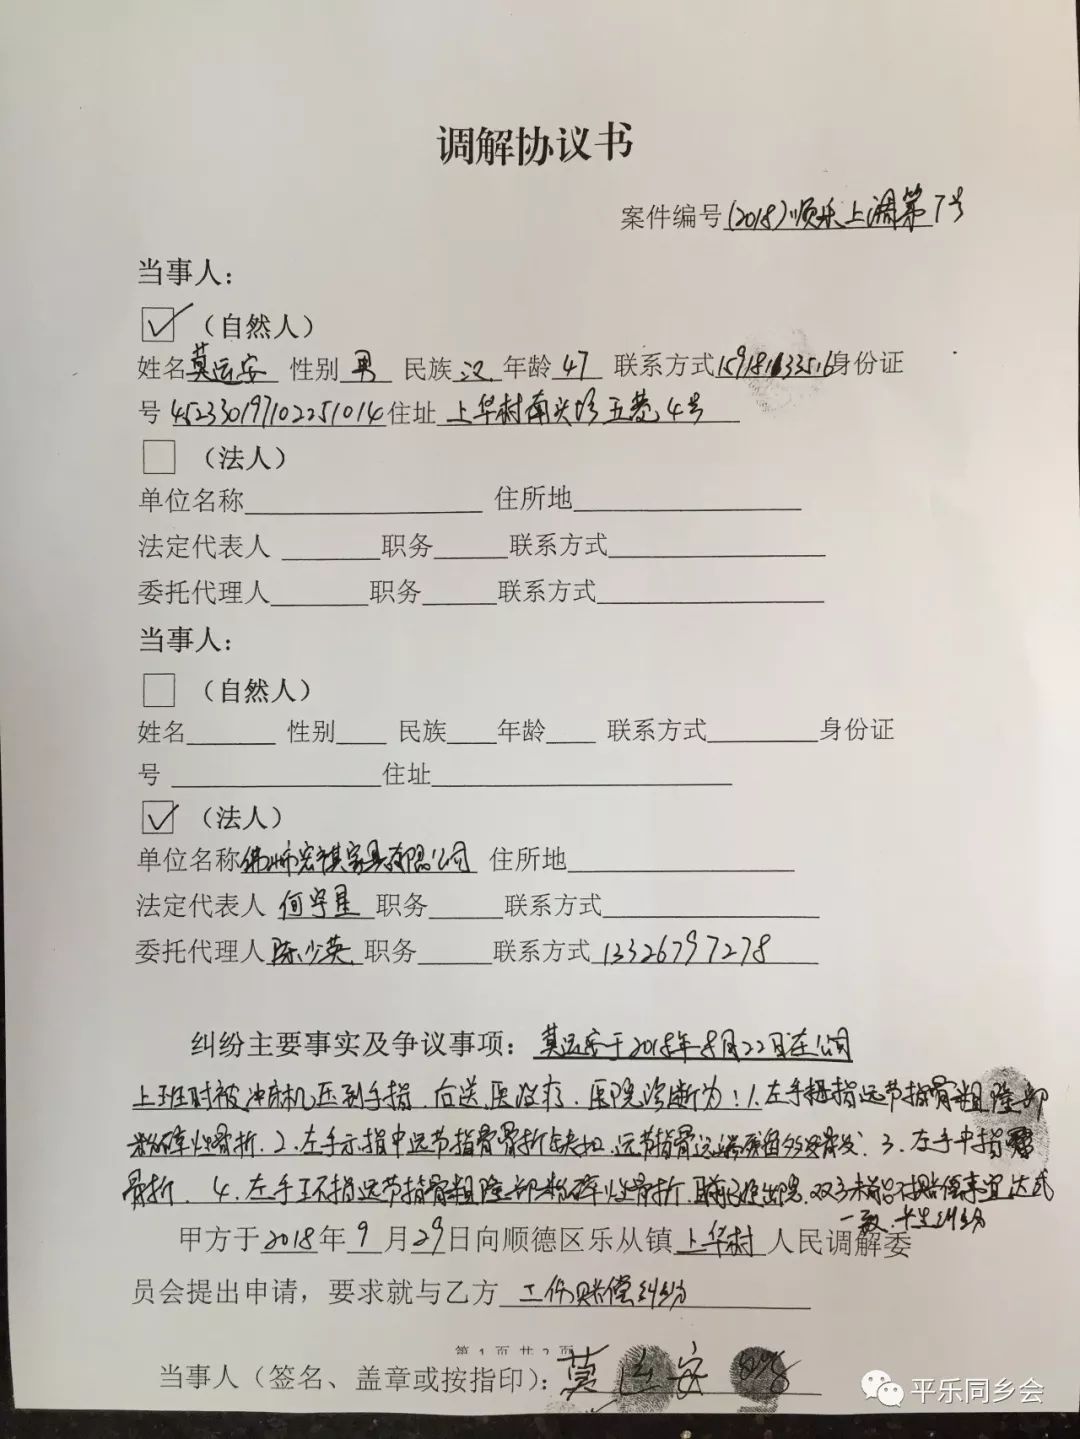 调解协议书
案件编号(2018)顺乐上调第7号
当事人：
（自然人）
姓名莫运安 性别 男 民族 汉 年龄 47 联系方式15918133516身份证
号 452330197102251014住址 上华村南兴坊五巷4号
（法人）
单位名称 住所地
法定代表人 职务 联系方式
委托代理人 职务 联系方式
当事人：
（自然人）
姓名 性别 民族 年龄 联系方式 身份证
号 住址
（法人）
单位名称佛山市宏祺家具有限公司 住所地
法定代表人 何守星 职务 联系方式
委托代理人 陈少英 职务 联系方式 13326797278
纠纷主要事实及争议事项：莫运安于2018年8月22日在公司
上班时被冲床机压到手指，后送医治疗，医院诊断为：1.左手拇指远节指骨粗隆部
粉碎性骨折．2．左手示指中远节指骨骨折缺损，远节指骨远端残留多发骨发；3．左手中指
骨折．4．左手环指远节指骨粗隆部粉碎性骨折．目前已经出院，双方未能就赔偿事宜达成
一致，发生纠纷
甲方于2018年9月29日向顺德区乐从镇上华村人民调解委
员会提出申请，要求就与乙方 工伤赔偿纠纷
第 1 页 共 2 页
当事人（签名、盖章或按指印）：莫运安
平乐同乡会